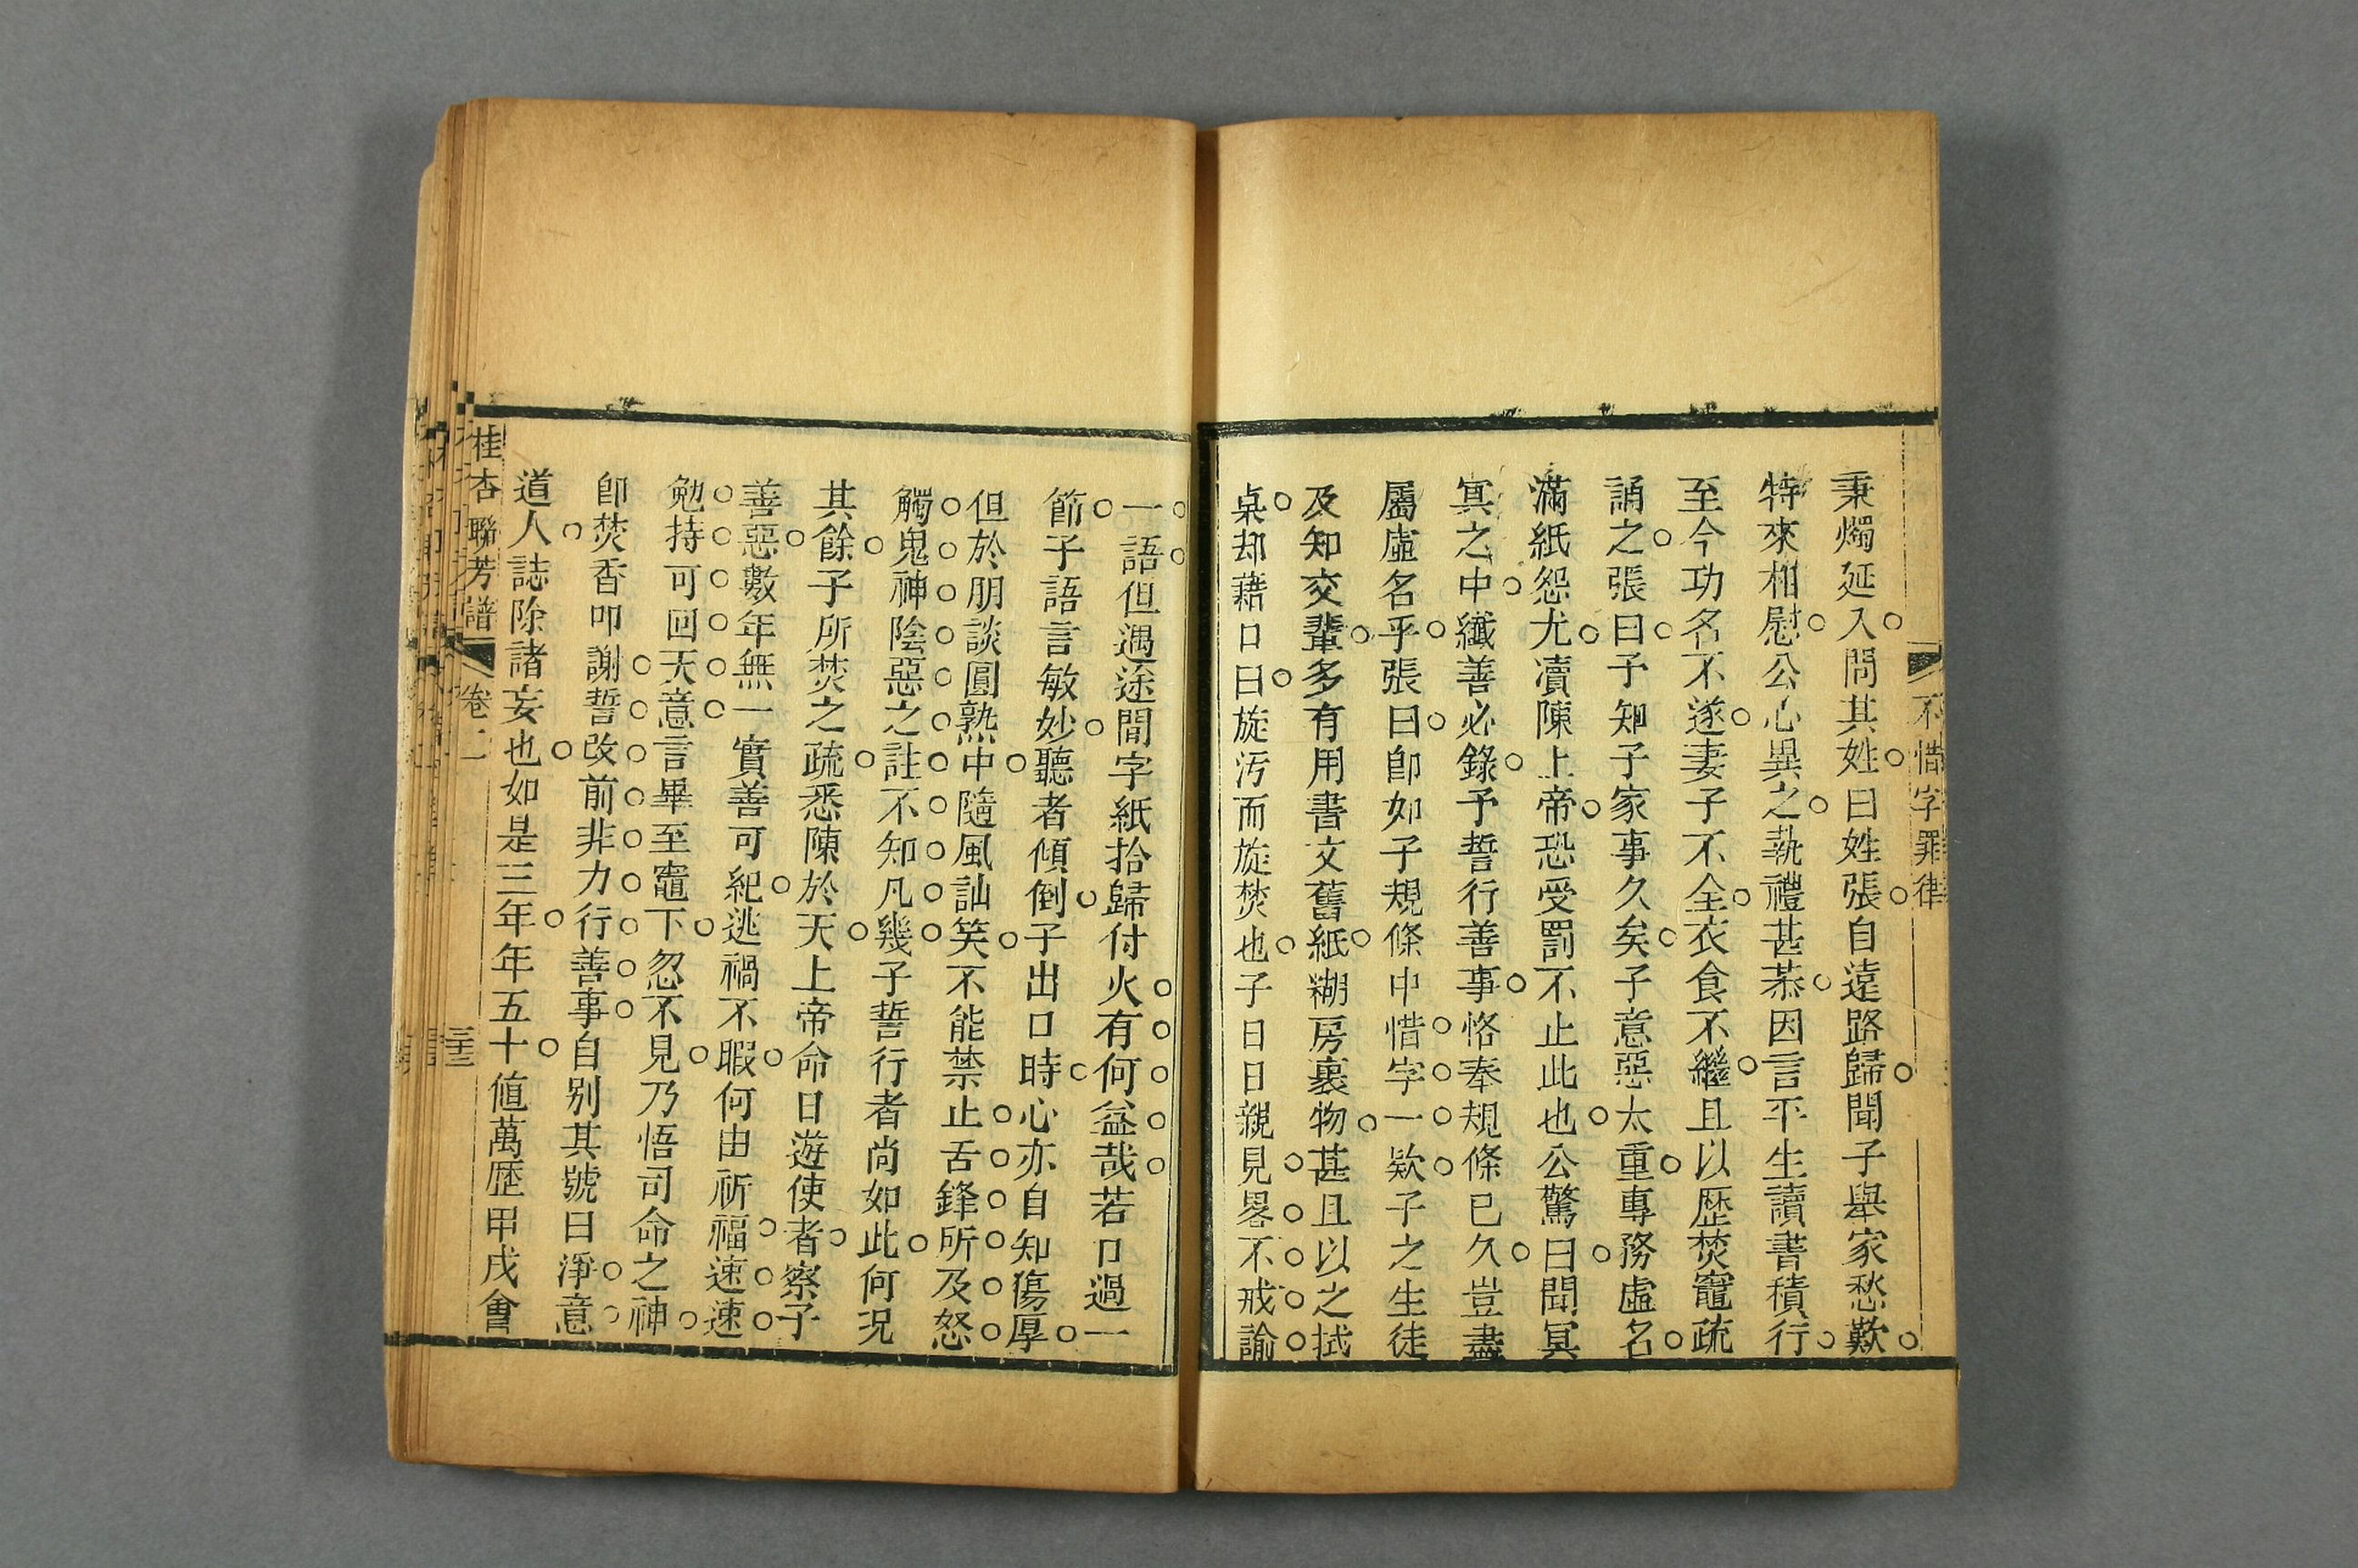 不惜字罪律
秉燭延入問其姓曰姓張自遠路歸聞子舉家愁歎
特來相慰公心異之執禮甚恭因言平生讀書積行
至今功名不遂妻子不全衣食不繼且以歷焚竈疏
誦之張曰子知子家事久矣子意惡太重專務虛名
滿紙怨尤瀆陳上帝恐受罰不止此也公驚曰聞冥
冥之中纖善必錄予誓行善事恪奉規條已久豈盡
屬虛名乎張曰卽如子規條中惜字一欵子之生徒
及知交輩多有用書文舊紙糊房裹物甚且以之拭
桌却藉口曰旋污而旋焚也子日日親見畧不戒諭
一語但遇途間字紙拾歸付火有何益哉若口過一
節子語言敏妙聽者傾倒子出口時心亦自知傷厚
但於朋談圓熟中隨風訕笑不能禁止舌鋒所及怒
觸鬼神陰惡之註不知凡幾子誓行者尚如此何况
其餘子所焚之疏悉陳於天上帝命日遊使者察子
善惡數年無一實善可紀逃禍不暇何由祈福速速
勉持可回天意言畢至竈下忽不見乃悟司命之神
卽焚香叩謝誓改前非力行善事自别其號曰淨意
道人誌除諸妄也如是三年年五十值萬歴甲戌會
桂杏聯芳譜 卷二 三十三